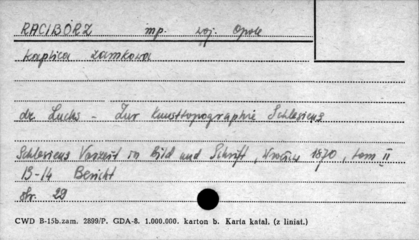 RACIBÓRZ mp. woj. Opole
kaplica zamkowa
dr. Luchs - Zur Kunsttopographie Schlesiens
Schlesiens Vorzeit in Bild und Schrift, Wrocław 1870, tom II
13-14 Bericht
str. 29
CWD B-15b.zam. 2899/P. GDA-8. 1.000.000. karton b. Karta katal. (z liniat.)